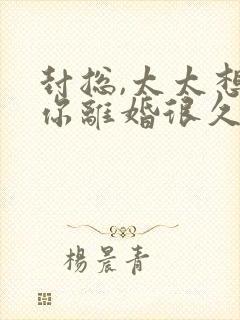 封总,太太想
你離婚很久
楊晨青